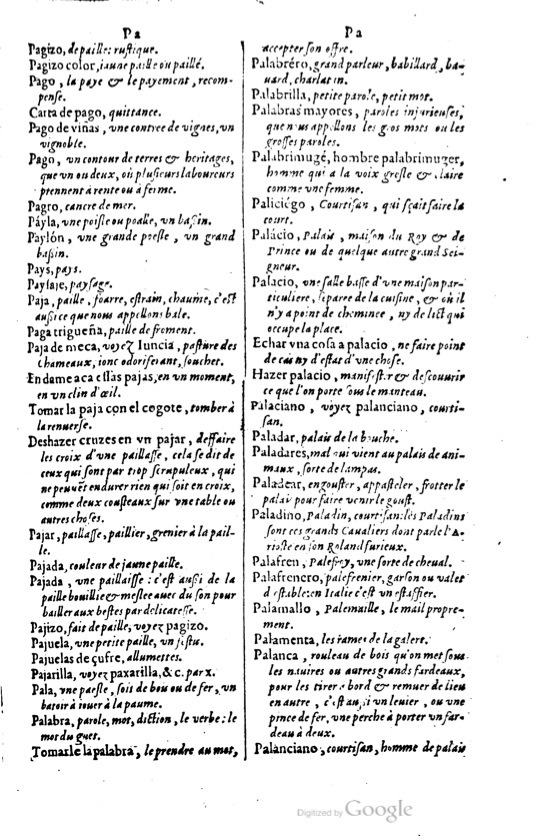 Pa
Pagizo, de paille: rustique.
Pagizo color, iaune paille ou paillé.
Pago, la paye & le payement, recom-
pense.
Carta de pago, quittance.
Pago de viñas, vne contree de vignes, vn
vignoble.
Pago, vn contour de terres & heritages,
que vn ou deux, où plusieurs laboureurs
prennent à rente ou à ferme.
Pagro, cancre de mer.
Páyla, vne poisle ou poalle, vn bassin.
Paylón, vne grande poesle, vn grand
bassin.
Pays, pays.
Paysaje, paysage.
Paja, paille, foarre, estrain, chaume, c'est
aussi ce que nous appellons bale.
Paga trigueña, paille de froment.
Paja de meca, voyez Iuncia, pasture des
chameaux, ionc odoriferant, souchet.
En dame aca essas pajas, en vn moment,
en vn clin d'œil.
Tomar la paja con el cogote, tomber à
la renuerse.
Deshazer cruzes en vn pajar, deffaire
les croix d'vne paillasse, cela se dit de
ceux qui sont par trop scrupuleux, qui
ne peuuẽt endurer rien qui soit en croix,
comme deux cousteaux sur vne table ou
autres choses.
Pajar, paillasse, paillier, grenier à la pail-
le.
Pajada, couleur de jaune paille.
Pajada, vne paillaisse: c'est aussi de la
paille bouillie & meslee auec du son pour
bailler aux bestes par delicatesse.
Pajizo, fait de paille, voyez pagizo.
Pajuela, vne petite paille, vn festu.
Pajuelas de çufre, allumettes.
Pajarilla, voyez paxarilla, &c. par x.
Pala, vne paesle, soit de bou ou de fer, vn
batoir à iouer à la paume.
Palabra, parole, mot, diction, le verbe: le
mot du guet.
Tomarle la palabra, le prendre au mot,
Pa
accepter son offre.
Palabréro, grand parleur, babillard, ba-
uard, charlatin.
Palabrilla, petite parole, petit mot.
Palabras mayores, paroles iniurieuses,
que nous appellons les gros mots ou les
grosses paroles.
Palabrimugé, hombre palabrimuger,
homme qui a la voix gresle & claire
comme vne femme.
Paliciégo, Courtisan, qui sçait faire la
court.
Palácio, Palais, maison du Roy & de
Prince ou de quelque autre grand Sei-
gneur.
Palacio, vne salle basse d'vne maison par-
ticuliere, separee de la cuisine, & où il
n'y a point de cheminee, ny de lict qui
occupe la place.
Echar vna cosa a palacio, ne faire point
de cas ny d'estat d'vne chose.
Hazer palacio, manifester & descouurir
ce que l'on porte sous le manteau.
Palaciano, voyez palanciano, courti-
san.
Paladar, palais de la bouche.
Paladares, mal qui vient au palais de ani-
maux, sorte de lampas.
Paladear, engouster, appasteler, frotter le
palais pour faire venir le goust.
Paladino, Paladin, courtisan: les Paladins
sont ces grands Caualiers dont parle l'A-
rioste en son Roland furieux.
Palafren, Palefroy, vne sorte de cheual.
Palafrenero, palefrenier, garson ou valet
d'estable: en Italie c'est vn estaffier.
Palamallo, Palemaille, le mail propre-
ment.
Palamenta, les rames de la galere.
Palanca, rouleau de bois qu'on met sous
les nauires ou autres grands fardeaux,
pour les tirer à bord & remuer de lieu
en autre, c'est aussi vn leuier, ou vne
pince de fer, vne perche à porter vn far-
deau à deux.
Palanciano, courtisan, homme de palais
Digitized by Google